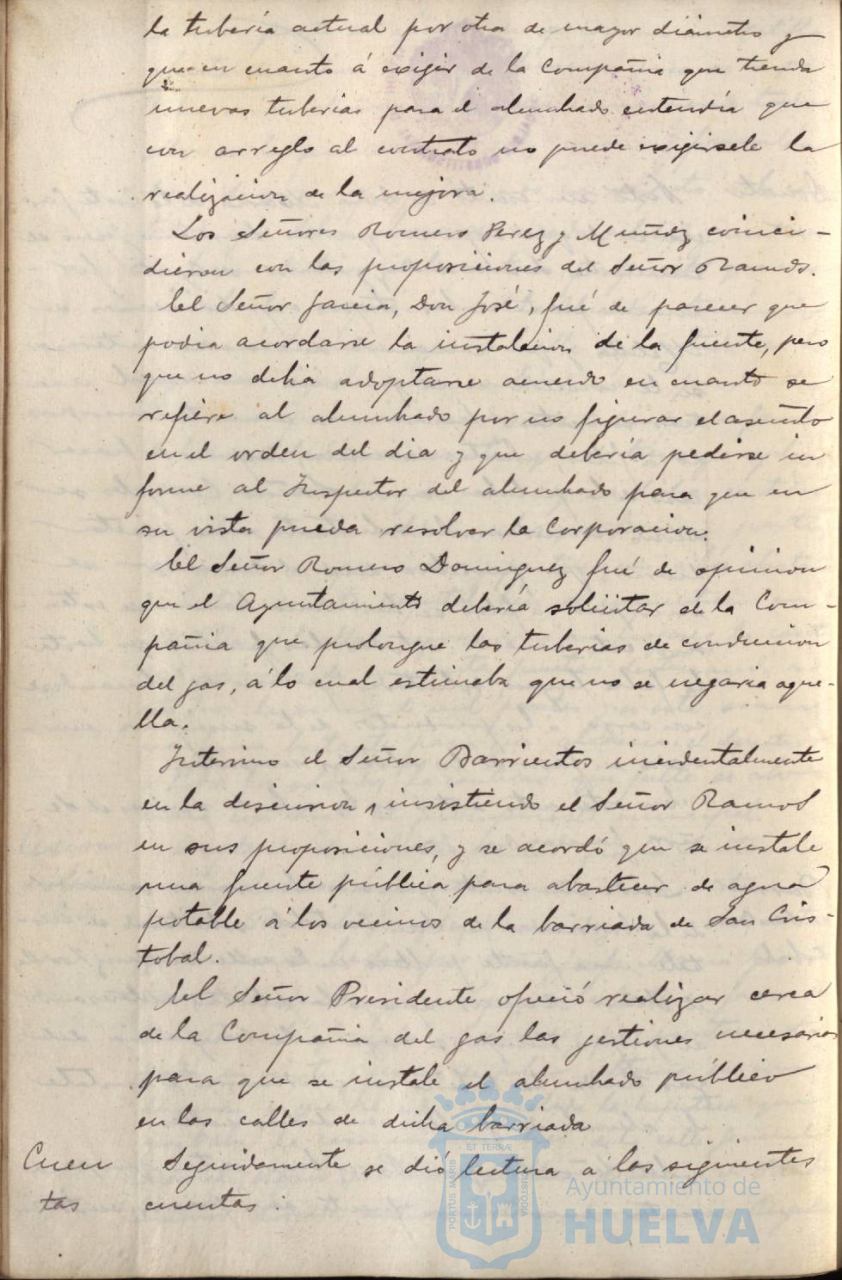 la tubería actual por otra de mayor diámetro y
que en cuanto á exigir de la Compañia que tienda
nuevas tuberias para el alumbrado entendía que
con arreglo al contrato no puede exigirsele la
realizacion de la mejora.
Los Señores Romero Perez y Muñoz coinci-
dieron con las proposiciones del Señor Ramos.
El Señor Garcia, Don José, fué de parecer que
podia acordarse la instalacion de la fuente, pero
que no debia adoptarse acuerdo en cuanto se
refiere al alumbrado por no figurar el asunto
en el orden del dia y que debería pedirse in
forme al Inspector del alumbrado para que en
su vista pueda resolver la Corporacion.
El Señor Romero Dominguez fué de opinion
que el Ayuntamiento debería solicitar de la Com-
pañia que prolongue las tuberias de conduccion
del gas, á lo cual estimaba que no se negaria aque-
lla.
Intervino el Señor Barrientos incidentalmente
en la discusion, insistiendo el Señor Ramos
en sus proposiciones, y se acordó que se instale
una fuente pública para abastecer de agua
potable á los vecinos de la barriada de San Cris-
tobal.
El Señor Presidente ofreció realizar cerca
de la Compañia del gas las gestiones necesarias
para que se instale el alumbrado público
en las calles de dicha barriada
Cuen
tas
Seguidamente se dió lectura á las siguientes
cuentas:
PORTUS MARIS
ET TERRÆ
CUSTODIA
Ayuntamiento de
HUELVA